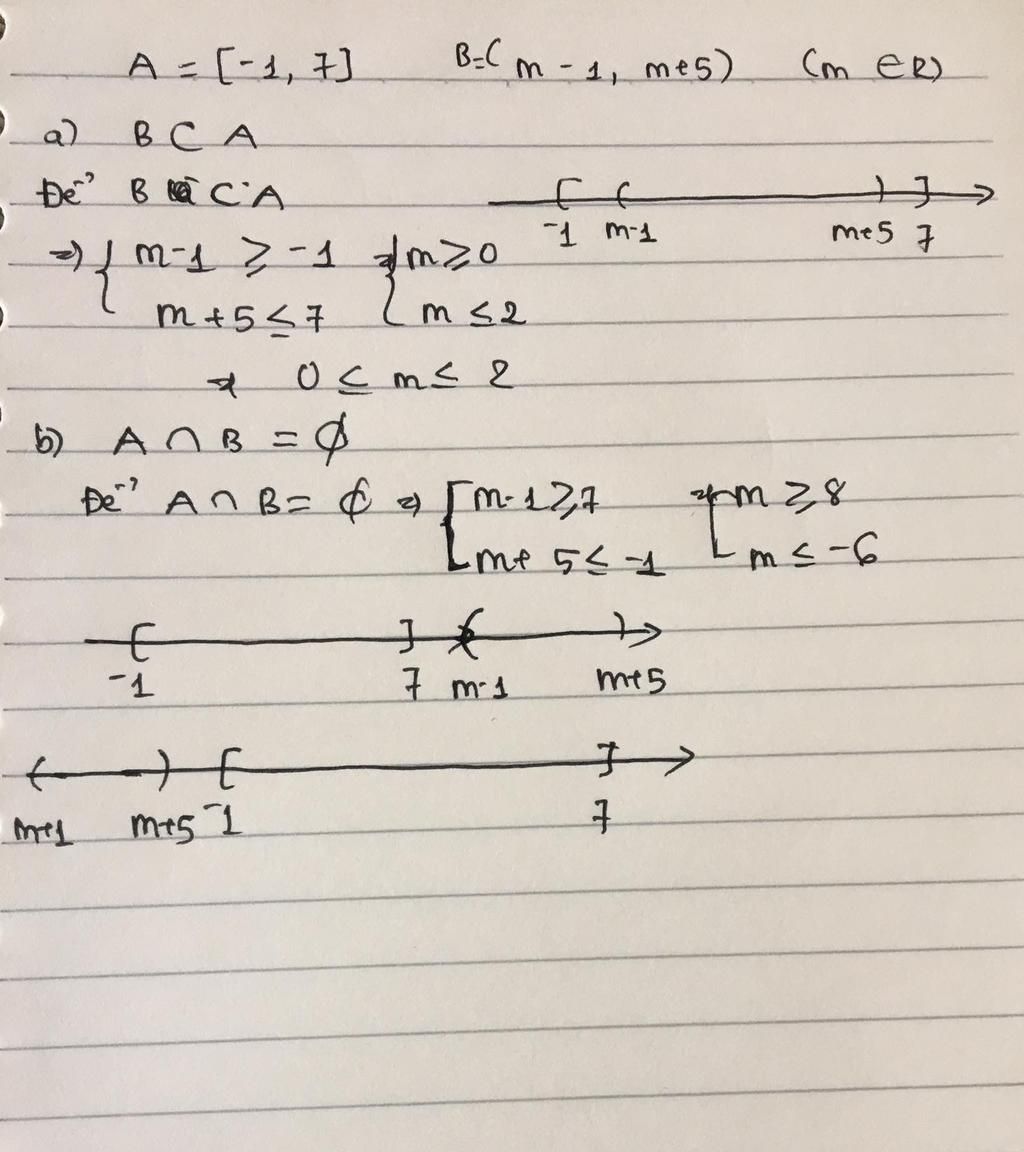 A = [-1, 7] B=( m - 1, m+5) (m ∈ R)
a) B ⊂ A
Để B ⊂ A
-1 m-1 m+5 7
=> { m-1 ≥ -1 => { m ≥ 0
m + 5 ≤ 7 m ≤ 2
=> 0 ≤ m ≤ 2
b) A ∩ B = ∅
Để A ∩ B = ∅ => [ m-1 ≥ 7 => [ m ≥ 8
m + 5 ≤ -1 m ≤ -6
-1 7 m-1 m+5
m+1 m+5 -1 7